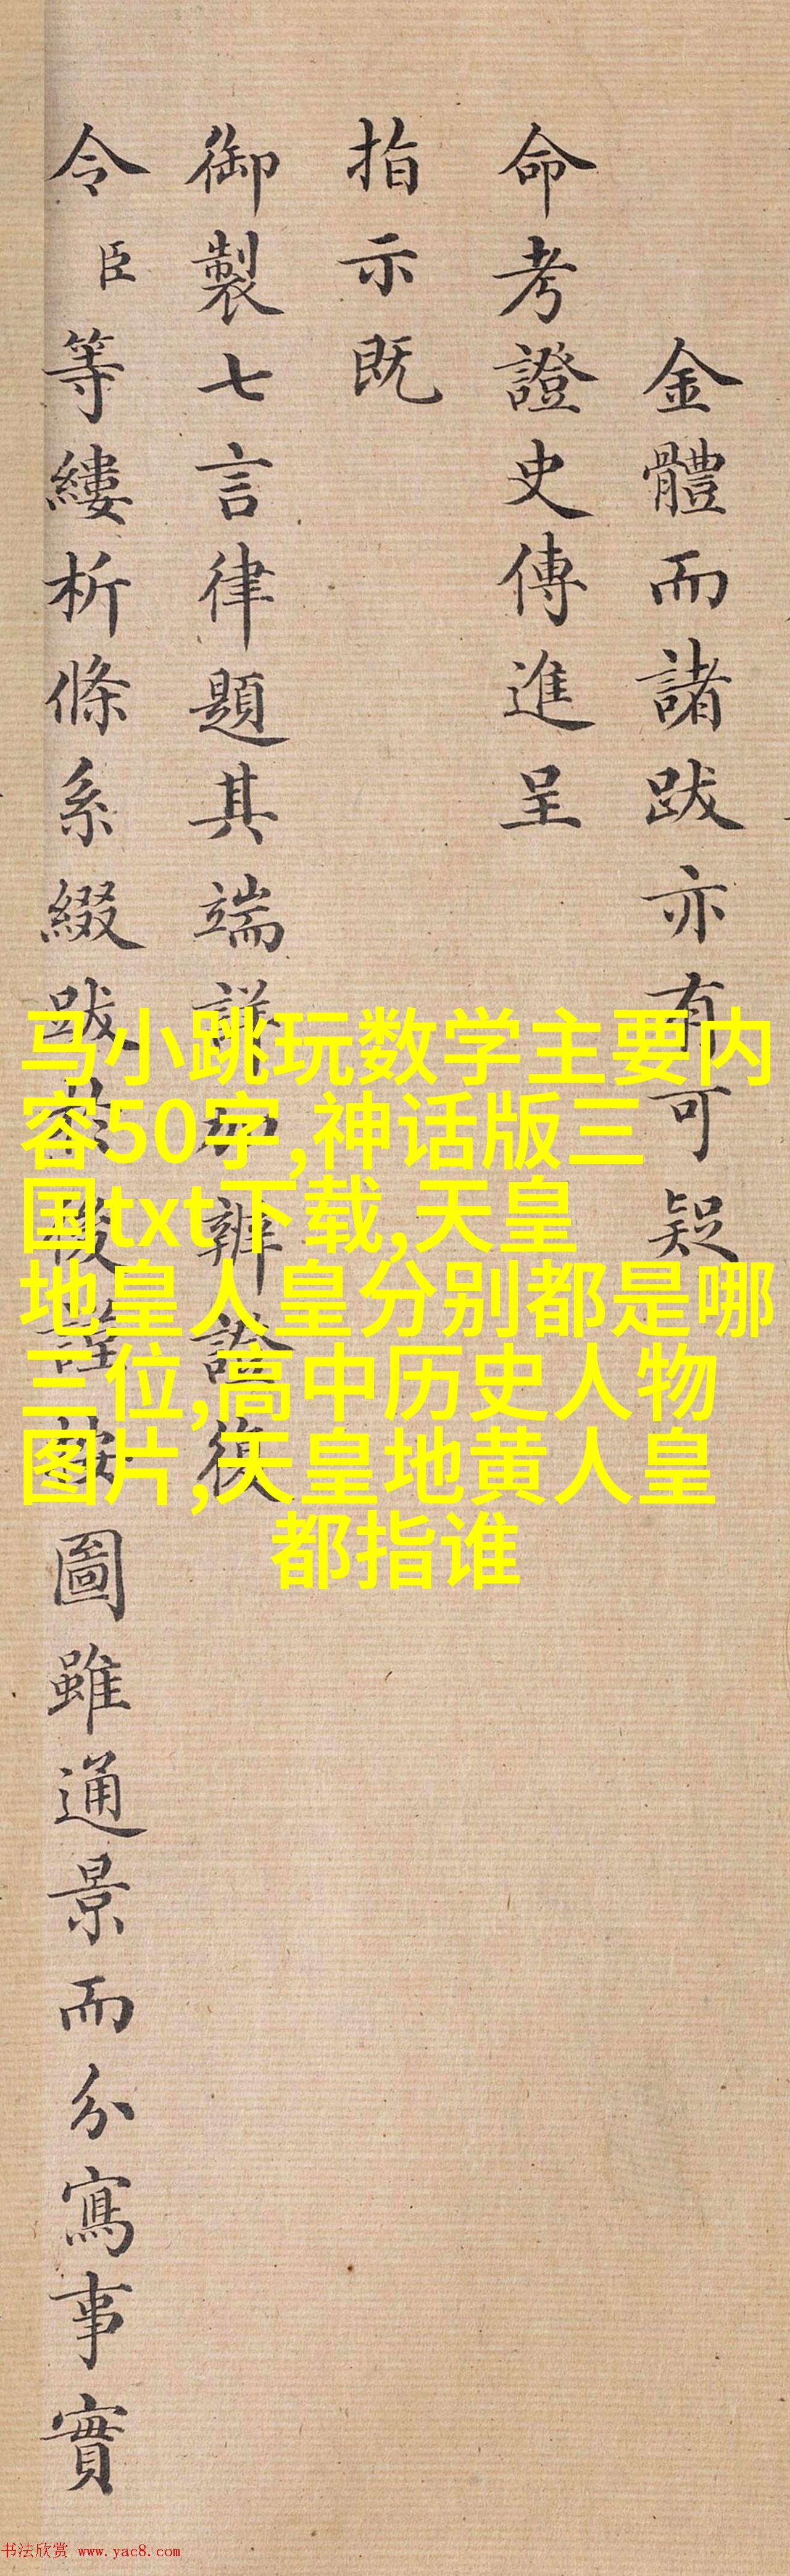 金體而諸跋亦有可疑
命考證史傳進呈
指示既
御製七言律題其端詳加辨證復
令臣等縷析條系綴跋於後謹按圖雖通景而分寫事實
马小跳玩数学主要内
容50字,神话版三
国txt下载,天皇
地皇人皇分别都是哪
三位,高中历史人物
图片,天皇地黄人皇
都指谁
书法欣赏 www.yac8.com